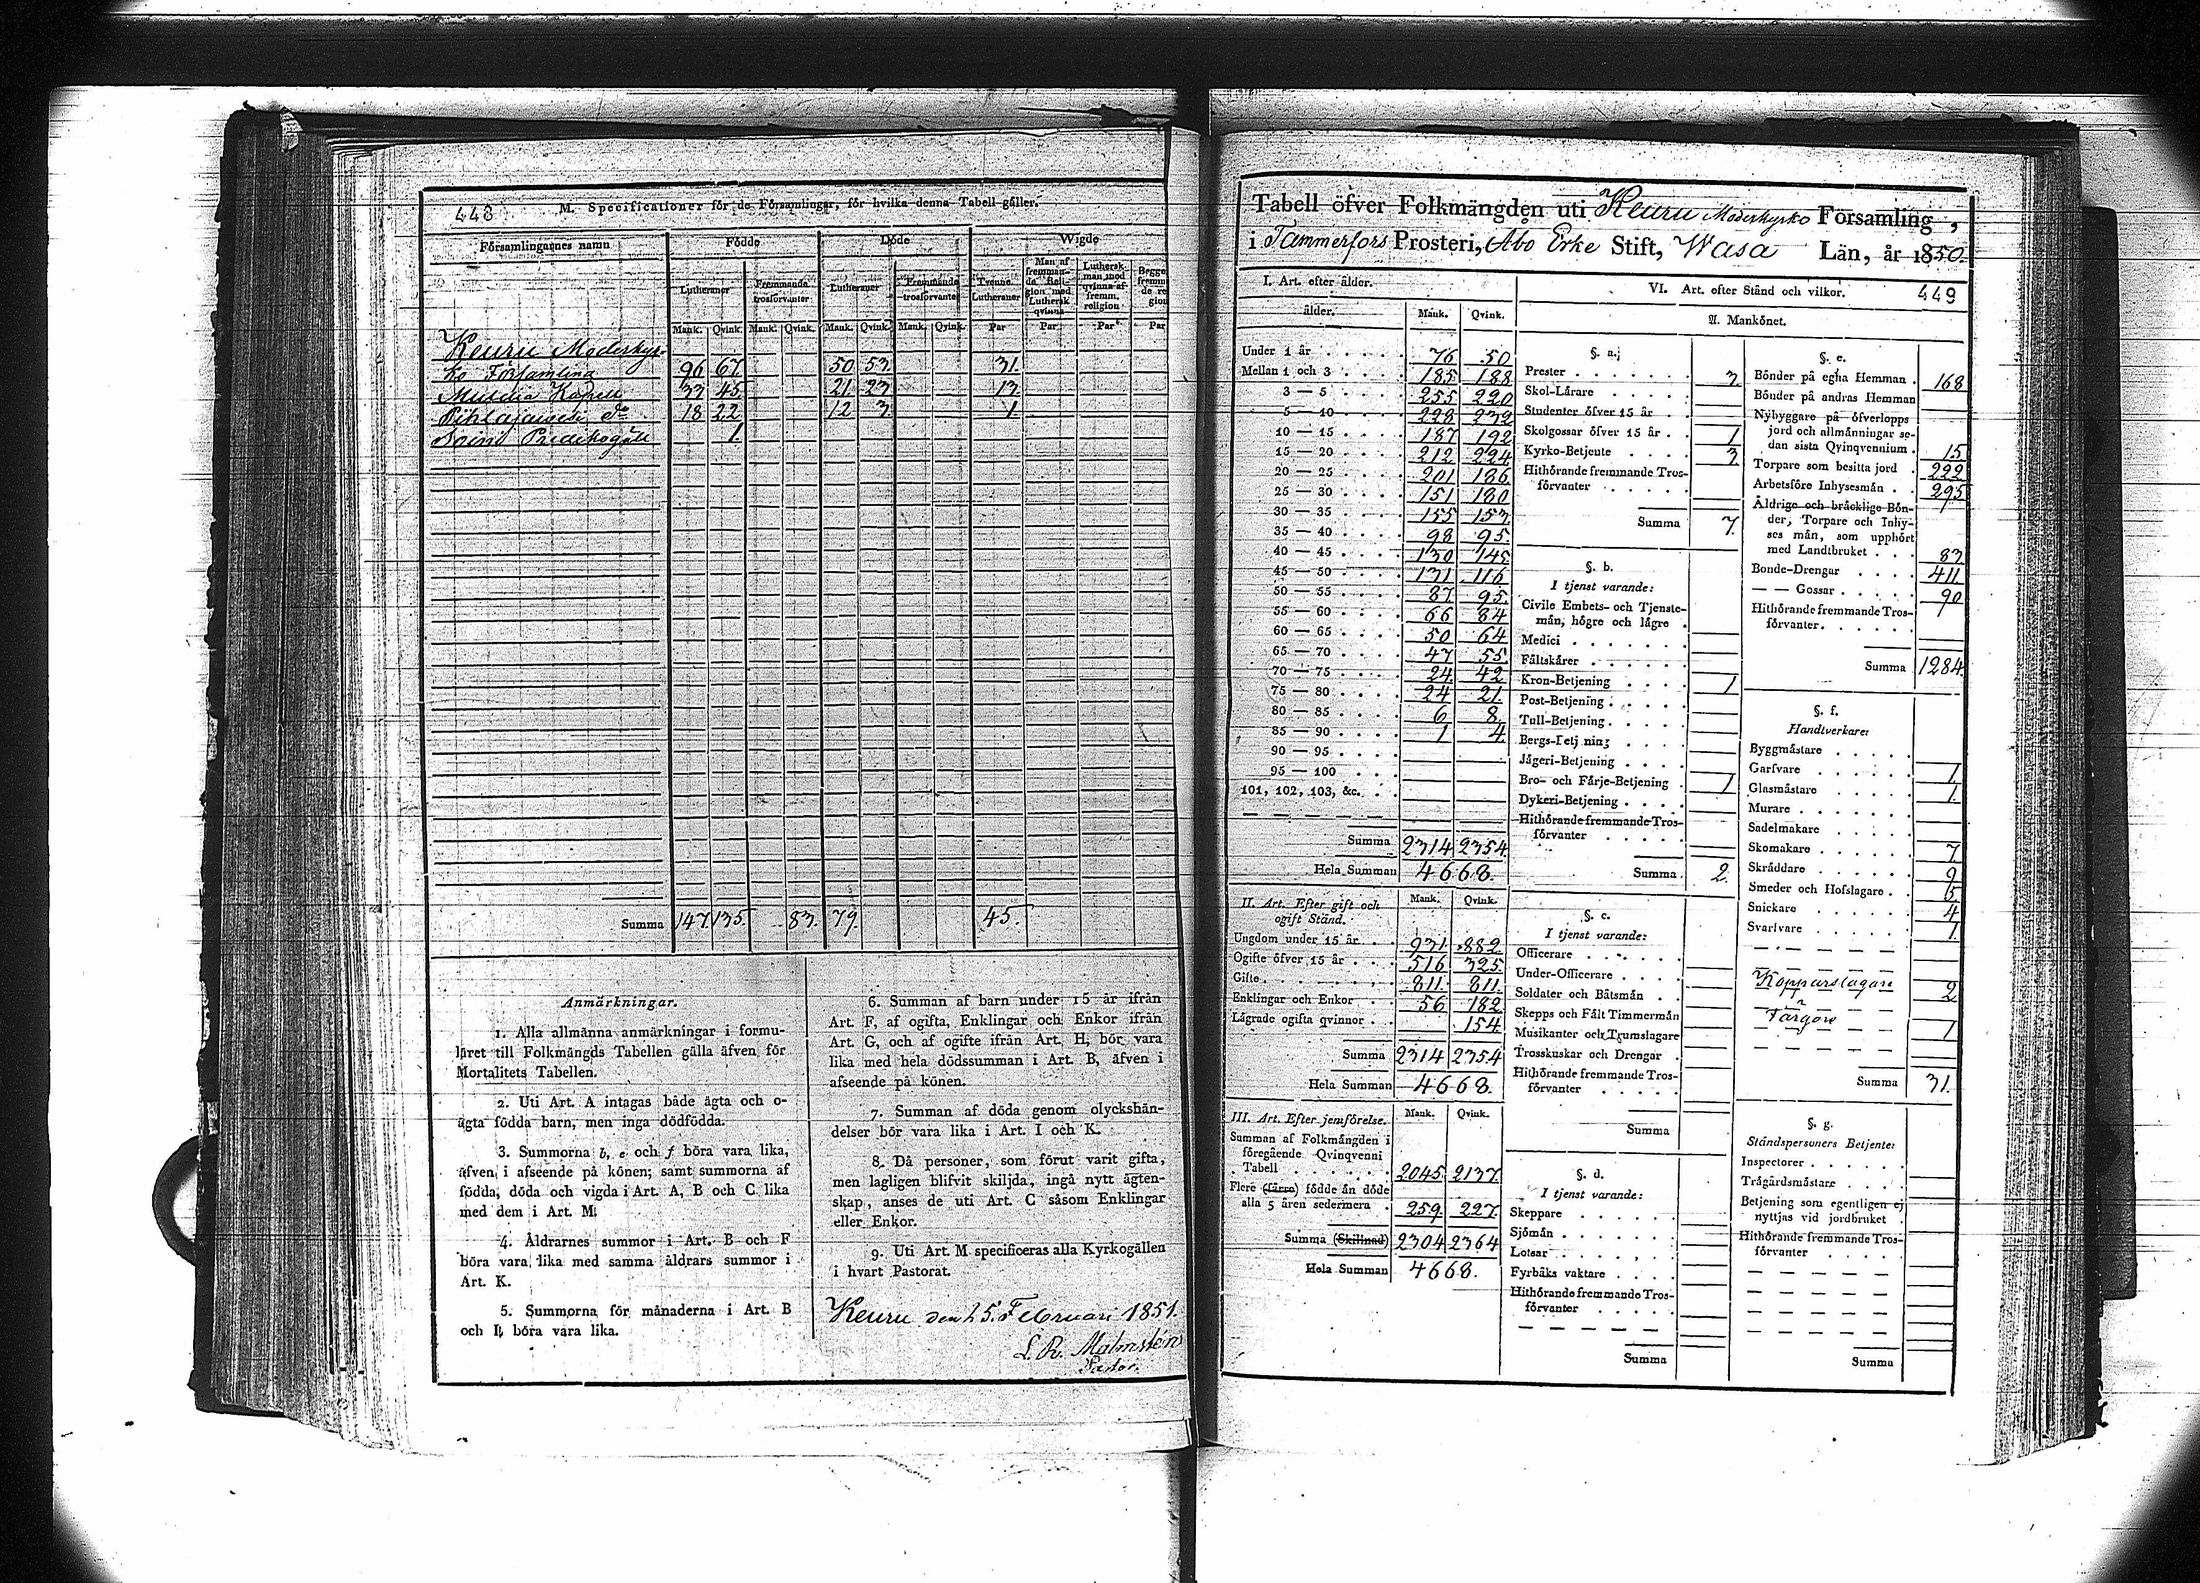 448
M. Specificationer för de Församlingar, för hvilka denna Tabell gäller.
Församlingarnes namn
Födde
Döde
Wigde
Lutheraner
Fremmande trosförvanter
Lutheraner
Fremmande trosförvanter
Tvenne Lutheraner
Man af fremmande Religion med Luthersk qvinna
Luthersk man med qvinna af fremm. religion
Begge fremmande religion
Mank. Qvink. Mank. Qvink. Mank. Qvink. Mank. Qvink. Par Par Par Par
Keuru Moderkyr-
ko Församling 96 67 50 53 31.
Multia Kapell 33 45 21 23 13
Pihlajavesi do 18 22 12 3 1
Soini Predikogäll 1
Summa 147 135 83. 79. 45.
Anmärkningar.
1. Alla allmänna anmärkningar i formu-
läret till Folkmängds Tabellen gälla äfven för
Mortalitets Tabellen.
2. Uti Art. A intagas både ägta och o-
ägta födda barn, men inga dödfödda.
3. Summorna b, e och f böra vara lika,
äfven i afseende på könen; samt summorna af
födda, döda och vigda i Art. A, B och C lika
med dem i Art. M.
4. Åldrarnes summor i Art. B och F
böra vara lika med samma åldrars summor i
Art. K.
5. Summorna för månaderna i Art. B
och L böra vara lika.
6. Summan af barn under 15 år ifrån
Art. F, af ogifta, Enklingar och Enkor ifrån
Art. G, och af ogifte ifrån Art. H, bör vara
lika med hela dödssumman i Art. B, äfven i
afseende på könen.
7. Summan af döda genom olyckshän-
delser bör vara lika i Art. I och K.
8. Då personer, som förut varit gifta,
men lagligen blifvit skiljda, ingå nytt ägten-
skap, anses de uti Art. C såsom Enklingar
eller Enkor.
9. Uti Art. M specificeras alla Kyrkogällen
i hvart Pastorat.
Keuru den 25. Februari 1851.
L. R. Malmstén
Pastor.
Tabell öfver Folkmängden uti Keuru Moderkyrko Församling,
i Tammerfors Prosteri, Åbo Erke Stift, Wasa Län, år 1850.
449
I. Art. efter ålder.
ålder. Mank. Qvink.
Under 1 år 76 50
Mellan 1 och 3 185 188
3 — 5 255 220
5 — 10 228 232
10 — 15 187 192
15 — 20 212 224
20 — 25 201 186
25 — 30 151 180
30 — 35 155 153
35 — 40 98 95
40 — 45 130 145
45 — 50 131 116
50 — 55 87 95
55 — 60 66 84
60 — 65 50 64
65 — 70 47 55
70 — 75 24 42
75 — 80 24 21
80 — 85 6 8
85 — 90 1 4
90 — 95
95 — 100
101, 102, 103, &c.
Summa 2314 2354
Hela Summan 4668.
II. Art. Efter gift och
ogift Stånd. Mank. Qvink.
Ungdom under 15 år 931 882
Ogifte öfver 15 år 516 325
Gifte 811 811
Enklingar och Enkor 56 182
Lägrade ogifta qvinnor 154
Summa 2314 2354
Hela Summan 4668.
III. Art. Efter jemförelse. Mank. Qvink.
Summan af Folkmängden i
föregående Qvinqvenni
Tabell 2045 2137
Flere (färre) födde än döde
alla 5 åren sedermera 259 227
Summa (Skillnad) 2304 2364
Hela Summan 4668.
VI. Art. efter Stånd och vilkor.
A. Mankönet.
§. a.
Prester 3
Skol-Lärare
Studenter öfver 15 år
Skolgossar öfver 15 år 1
Kyrko-Betjente 3
Hithörande fremmande Tros-
förvanter
Summa 7.
§. b.
I tjenst varande:
Civile Embets- och Tjenste-
män, högre och lägre
Medici
Fältskärer
Kron-Betjening 1
Post-Betjening
Tull-Betjening
Bergs-Betjening
Jägeri-Betjening
Bro- och Färje-Betjening 1
Dykeri-Betjening
Hithörande fremmande Tros-
förvanter
Summa 2
§. c.
I tjenst varande:
Officerare
Under-Officerare
Soldater och Båtsmän
Skepps och Fält Timmermän
Musikanter och Trumslagare
Trosskuskar och Drengar
Hithörande fremmande Tros-
förvanter
Summa
§. d.
I tjenst varande:
Skeppare
Sjömän
Lotsar
Fyrbåks vaktare
Hithörande fremmande Tros-
förvanter
Summa
§. e.
Bönder på egna Hemman 168
Bönder på andras Hemman
Nybyggare på öfverlopps
jord och allmänningar se-
dan sista Qvinqvennium 15
Torpare som besitta jord 222
Arbetsföre Inhysesmän 295
Åldrige och bräcklige Bön-
der, Torpare och Inhy-
ses män, som upphört
med Landtbruket 83
Bonde-Drengar 411
— — Gossar 90
Hithörande fremmande Tros-
förvanter
Summa 1284.
§. f.
Handtverkare:
Byggmästare
Garfvare 1
Glasmästare 1
Murare
Sadelmakare
Skomakare 7
Skräddare 9
Smeder och Hofslagare 5
Snickare 4
Svarfvare 1
Kopparslagare 2
Färgare 1
Summa 31.
§. g.
Ståndspersoners Betjente:
Inspectorer
Trägårdsmästare
Betjening som egentligen ej
nyttjas vid jordbruket
Hithörande fremmande Tros-
förvanter
Summa